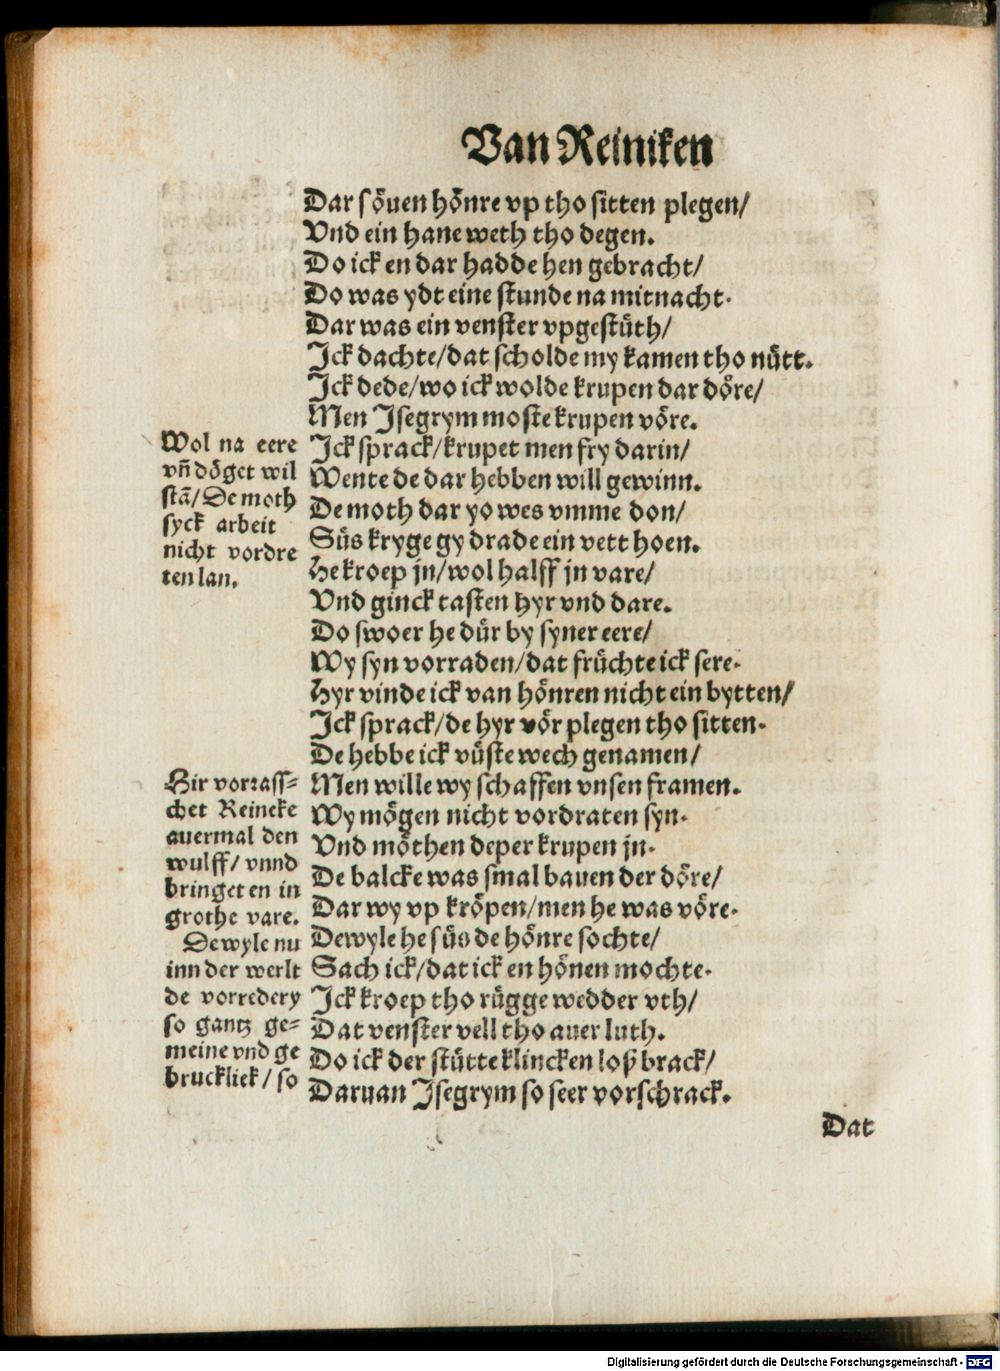 Van Reiniken
Dar söuen hönre vp tho sitten plegen/
Vnd ein hane weth tho degen.
Do ick en dar hadde hen gebracht/
Do was ydt eine stunde na mitnacht.
Dar was ein venster vpgestüth/
Ick dachte/dat scholde my kamen tho nütt.
Ick dede/wo ick wolde krupen dar döre/
Men Isegrym moste krupen vöre.
Ick sprack/krupet men fry darin/
Wente de dar hebben will gewinn.
De moth dar yo wes vmme don/
Süs kryge gy drade ein vett hoen.
He kroep jn/wol halff jn vare/
Vnd ginck tasten hyr vnd dare.
Do swoer he dür by syner eere/
Wy syn vorraden/dat früchte ick sere.
Hyr vinde ick van hönren nicht ein bytten/
Ick sprack/de hyr vör plegen tho sitten.
De hebbe ick vüste wech genamen/
Men wille wy schaffen vnsen framen.
Wy mögen nicht vordraten syn.
Vnd möthen deper krupen jn.
De balcke was smal bauen der döre/
Dar wy vp kröpen/men he was vöre.
Dewyle he süs de hönre sochte/
Sach ick/dat ick en hönen mochte.
Ick kroep tho rügge wedder vth/
Dat venster vell tho auer luth.
Do ick der stütte klincken loß brack/
Daruan Isegrym so seer vorschrack.
Wol na eere
vñ döget wil
stā/De moth
syck arbeit
nicht vordre
ten lan.
Hir vorrass-
chet Reineke
auermal den
wulff/ vnnd
bringet en in
grothe vare.
Dewyle nu
inn der werlt
de vorredery
so gantz ge-
meine vnd ge
brucklick/ so
Dat
Digitalisierung gefördert durch die Deutsche Forschungsgemeinschaft - DFG